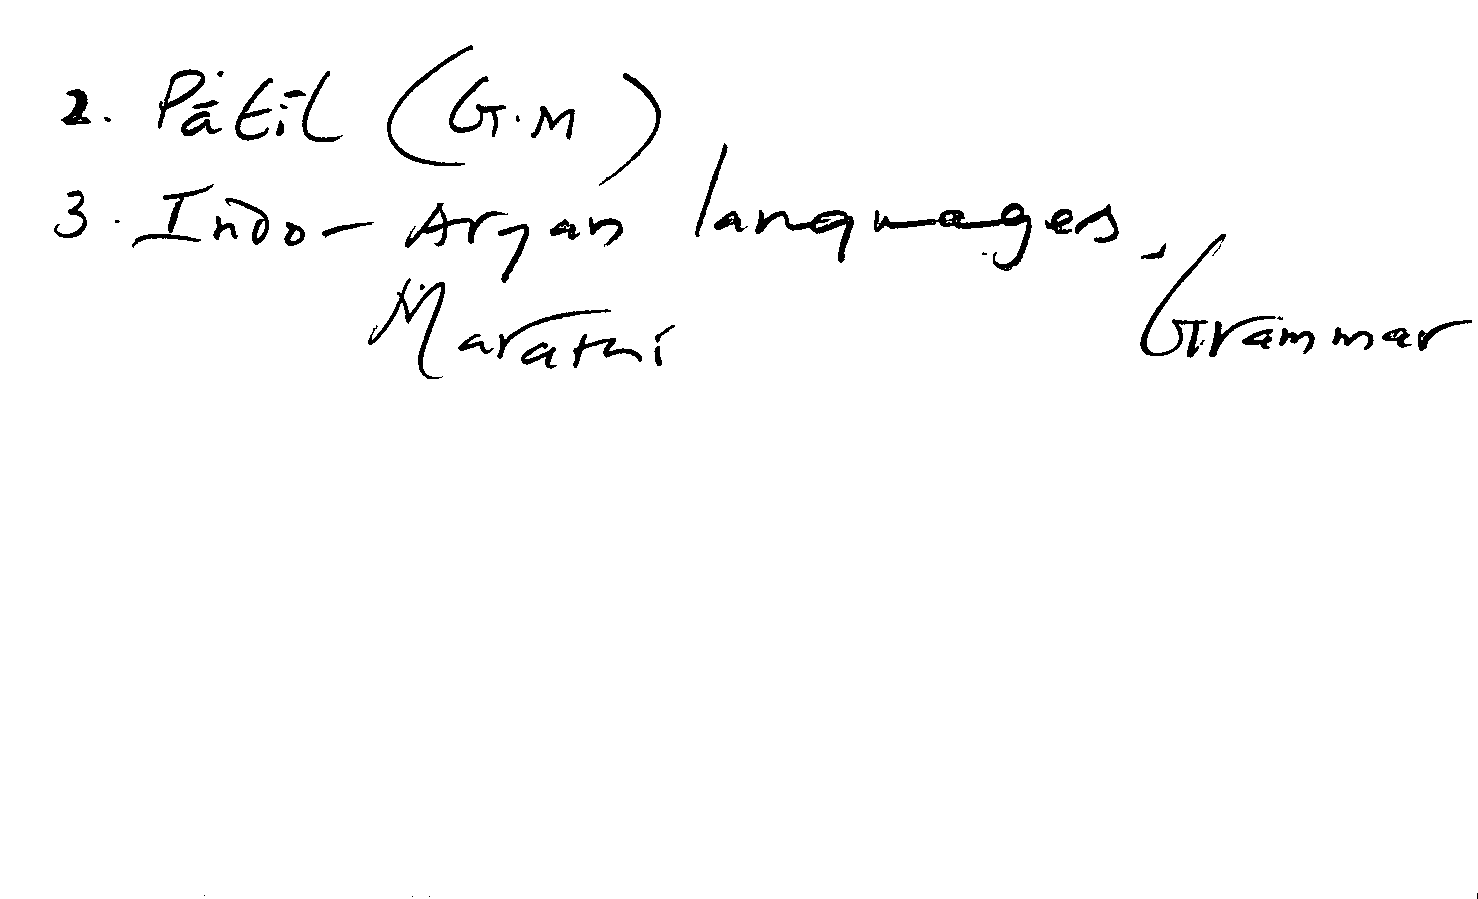 2. Pātīl (G.M)
3. Indo-Aryan languages,
Marathi Grammar